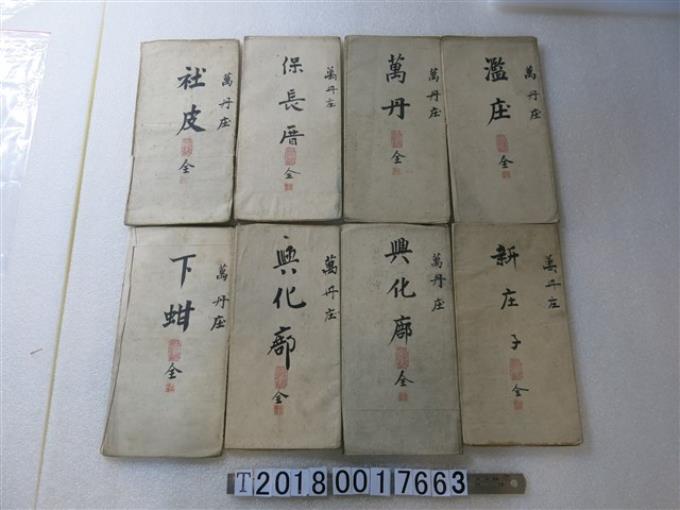 萬丹庄
社皮
全
萬丹庄
保長厝
全
萬丹庄
萬丹
全
萬丹庄
濫庄
全
萬丹庄
下蚶
全
萬丹庄
興化廍
全
萬丹庄
興化廍
全
萬丹庄
新庄子
全
T20180017663